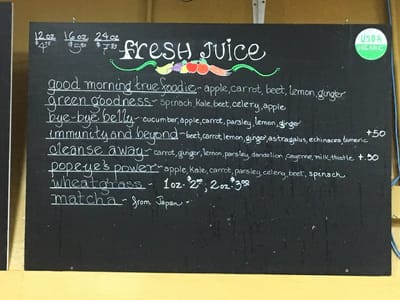 12oz 16oz 24oz
fresh juice
USDA
ORGANIC
good morning true foodie - apple, carrot, beet, lemon, ginger
green goodness - spinach, kale, beet, celery, apple
bye-bye belly - cucumber, apple, carrot, parsley, lemon, ginger
immunity and beyond - beet, carrot, lemon, ginger, astragalus, echinacea, tumeric +.50
cleanse away - carrot, ginger, lemon, parsley, dandelion, cayenne, milk thistle +.50
popeye's power - apple, kale, carrot, parsley, celery, beet, spinach
wheatgrass - 1oz. $2⁰⁰, 2oz. $3⁵⁰
matcha - from Japan -